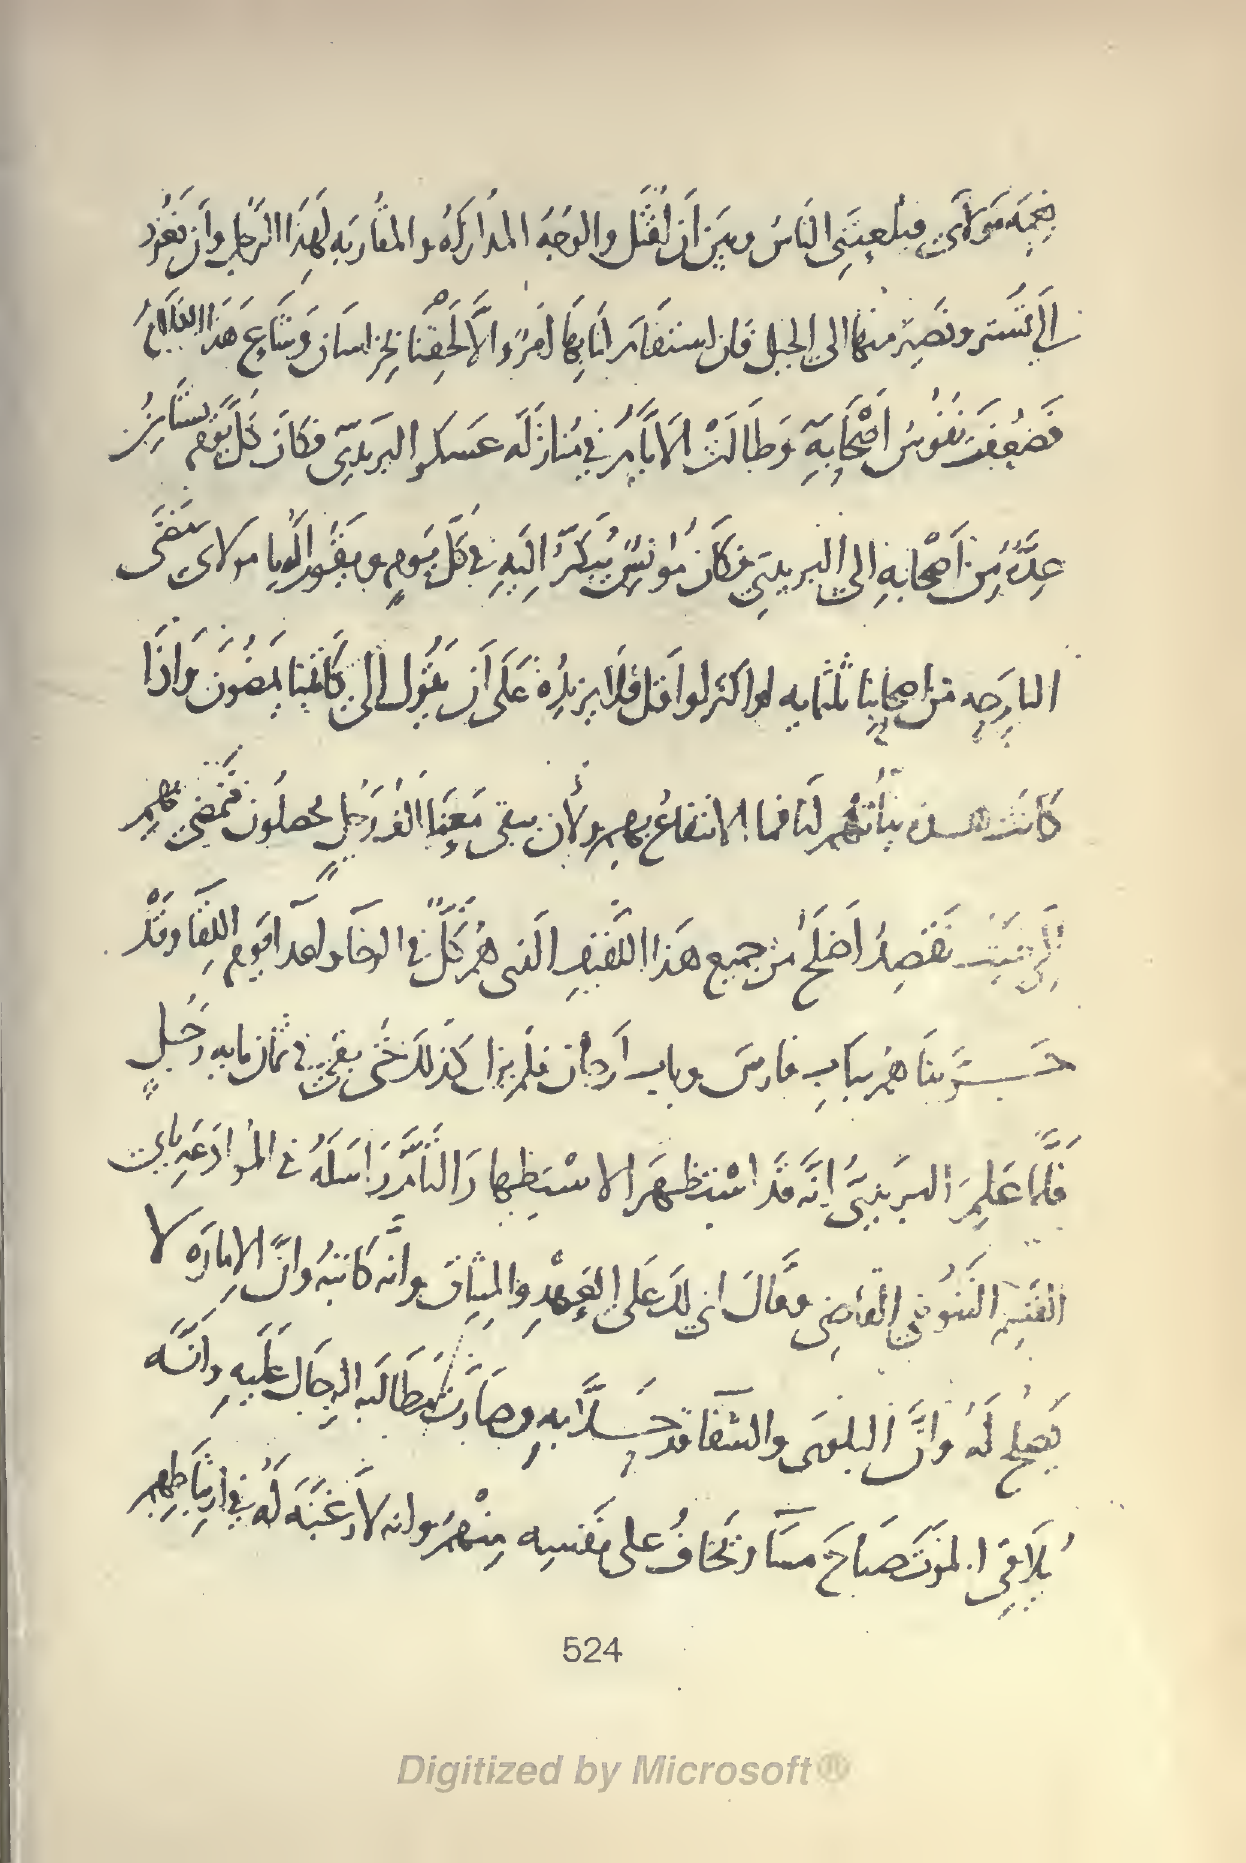 بخمة مولاى فبلعبتني الناس وبين ان نقتل والوجه المداركه والمقاربه لهذا الرجل وان نعود
الى تستر ونصير منها الى الجبل فان استقام لنا بها امر والا لحقنا بخراسان وشاع هذا الكلام
فضعفت نفوس اصحابه وطالت الايام في منازلة عسكر البريدي فكان كل يوم يستامن
عدة من اصحابه الى البريدي فكان مونس يبكر اليه في كل يوم ويقول له يا مولاى مضى
البارحه من اصحابنا ثلثمايه او اكثر او اقل فلا يزيده على ان يقول الى كاتبنا يمضون واذا
كانت هذه نياتهم لنا فما الانتفاع بهم ولان يبقى معنا الف رجل محصلون فنمضي بهم
الى حيث نقصد اصلح من جميع هذا اللفيف الذى هم كل في الرخا ولا اقوم اللقا وقد
جربناهم بباب فارس وباب ارجان فلم يزل كذلك حتى بقي في ثمان مايه رجل
فلما علم البريدي انه قد استظهر الاستظهار التام راسله في الموادعه بابي
القسم التنوخي القاضي وقال اني لك على العهد والميثاق وانه كاتبه وان الاماره لا
تصلح له وان البلوى والشقا قد حلا به وصارت مطالبه الرجال عليه وانه
يلاقى الموت صباح مسا ويخاف على نفسه منهم وانه لا رغبة له في ارتباطهم
524
Digitized by Microsoft®